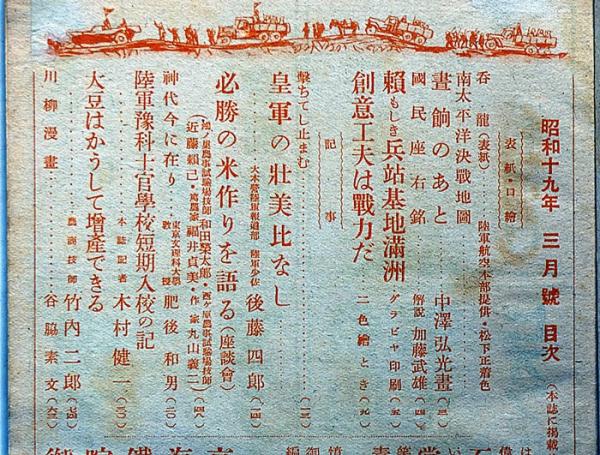 昭和十九年 三月號 目次
(本誌に掲載
表紙・口繪
呑龍(表紙) 陸軍航空本部提供・松下正着色
南太平洋決戰地圖
晝餉のあと 中澤弘光畫
國民座右銘 解説 加藤武雄
賴もしき兵站基地滿洲 グラビヤ印刷
創意工夫は戰力だ 二色繪とき
記事
擊ちてし止まむ
皇軍の壯美比なし 大本營陸軍報道部 陸軍少佐 後藤四郎
必勝の米作りを語る(座談會)
農事試驗場技師 和田榮太郎・西ヶ原農事試驗場技師
近藤賴己・篤農家 福井貞美・作家 丸山義二
神代今に在り 東京文理科大學教授 肥後和男
陸軍豫科士官學校短期入校の記 本誌記者 木村健一
大豆はかうして增産できる 農商技師 竹内二郎
川柳漫畫 谷脇素文